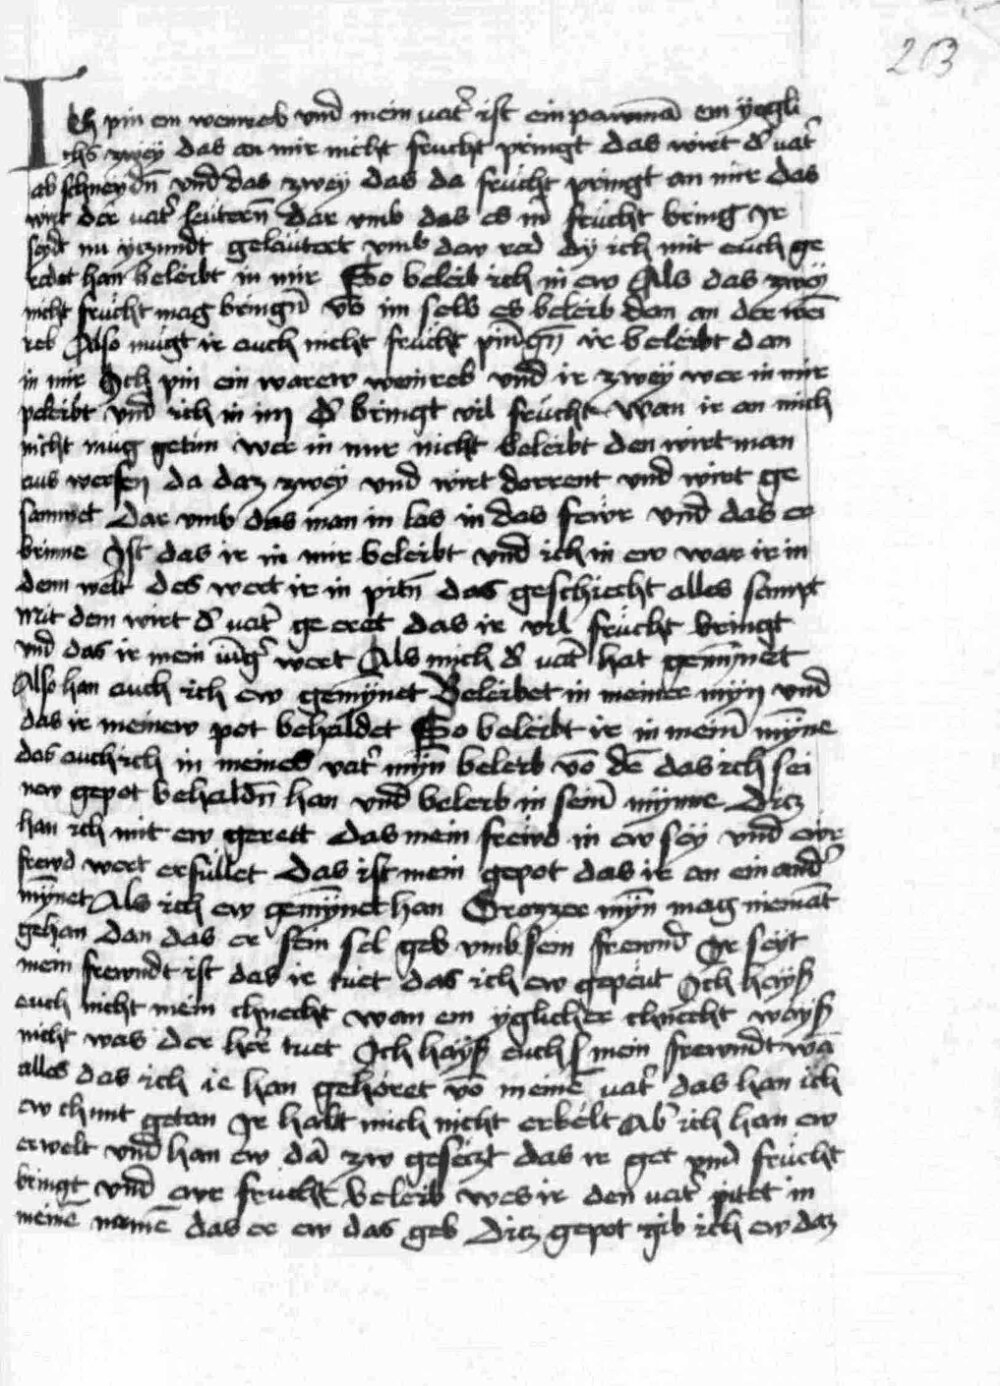 203
Ich pin ein weinreb vnd mein vat͛ ist ein pawmā ein yegli
chs zwey das an mir nicht frucht pringt das wirt d͛ vat͛
ab schneydn̄ vnd das zwey das da frücht pringt an mir das
wirt der vat͛ leütern̄ dar vmb das es m̄ frücht bring Ir
seyt nu yczundt geleütert vmb dew red dÿ ich mit euch ge
redet han beleibt in mir So beleib ich in ew Als das zweÿ
nicht frücht mag bringn̄ vō im selb es beleib dan an der wei
reb Also mügt ir auch nicht frücht pringn̄ ir beleibt dan
in mir Ich pin ein warew weinreb vnd ir zweÿ wer in mir
peleibt vnd ich in im d͛ bringt vil frücht wan ir an mich
nicht mug getun wer in mir nicht beleibt den wirt man
aus werfen da daz zweÿ vnd wirt dorrent vnd wirt ge
samnet Dar vmb das man in las in das fewr vnd das er
brinne Ist das ir in mir beleibt vnd ich in ew war ir in
dem welt des wert ir in pitn̄ das geschiecht alles sampt
mit dem wirt d͛ vat͛ ge eret das ir vil frücht bringt
vnd das ir mein iūg͛ wert Als mich d͛ vat͛ hat gemÿnet
Also han auch ich ew gemÿnet Beleibet in meiner mÿn vnd
das ir meinew pot behaldet So beleibt ir in mein̄ mÿne
das auch ich in meines vat͛ mÿn̄ beleib vō dē das ich sei
new gepot behaldn̄ han vnd beleib in sein̄ mÿnne Dicz
han ich mit ew gerett das mein frewd in ew seÿ vnd ewr
frewd wert erfüllet Das ist mein gepot das ir an ein and͛
mÿnet Als ich ew gemÿnet han Grozzer mÿn̄ mag niemāt
gehan dan das er sein sel geb vmb sein frewnd Ir seyt
mein frewndt ist das ir tuet das ich ew gepeut Ich hayß
euch nicht mein chnecht wan ein yglicher chnecht wayß
nicht was der her͛ tuet Ich hayß euch mein frewndt wā
alles das ich ie han gehöret vō meinē vat͛ das han ich
ew chunt getan Ir habt mich nicht erbelt Ab͛ ich han ew
erwelt vnd han ew dā zw geseczt das ir get vnd frücht
bringt vnd ewr frücht beleib wes ir den vat͛ pitet in
meinē namē das er ew das geb Dicz gepot gib ich ew daz